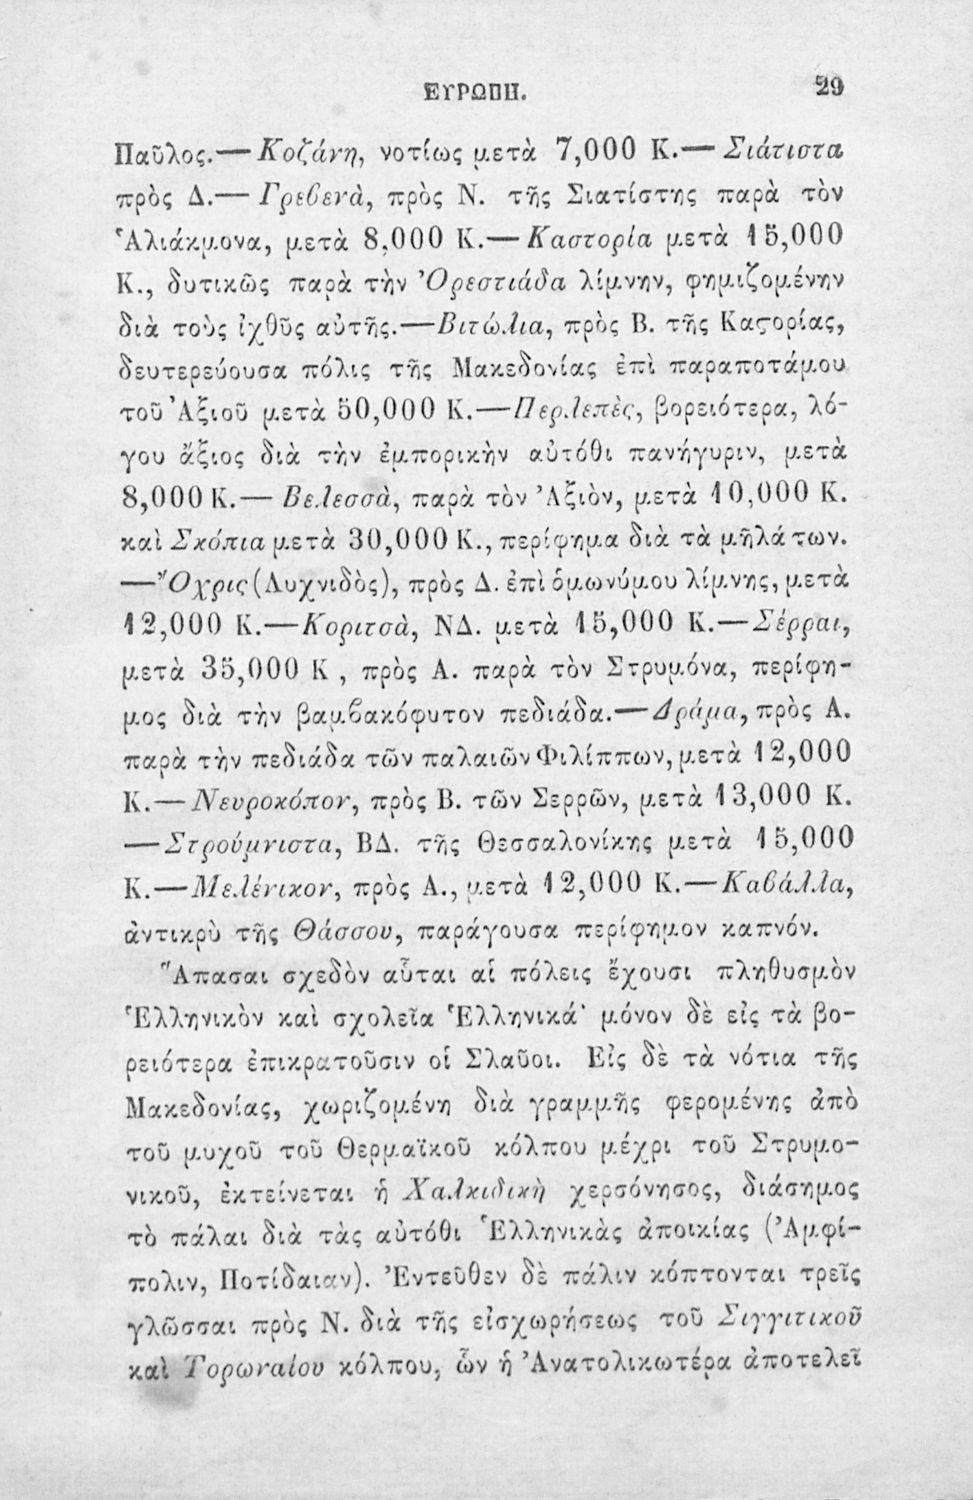 ΕΥΡΩΠΗ. 29
Παῦλος.— Κοζάνη, νοτίως μετὰ 7,000 Κ.— Σιάτιστα
πρὸς Δ.— Γρεβενὰ, πρὸς Ν. τῆς Σιατίστης παρὰ τὸν
Ἁλιάκμονα, μετὰ 8,000 Κ.— Καστορία μετὰ 15,000
Κ., δυτικῶς παρὰ τὴν Ὀρεστιάδα λίμνην, φημιζομένην
διὰ τοὺς ἰχθῦς αὐτῆς.—Βιτώλια, πρὸς Β. τῆς Καϛορίας,
δευτερεύουσα πόλις τῆς Μακεδονίας ἐπὶ παραποτάμου
τοῦ Ἀξιοῦ μετὰ 50,000 Κ.—Περλεπὲς, βορειότερα, λό-
γου ἄξιος διὰ τὴν ἐμπορικὴν αὐτόθι πανήγυριν, μετὰ
8,000 Κ.— Βελεσσὰ, παρὰ τὸν Ἀξιὸν, μετὰ 10,000 Κ.
καὶ Σκόπια μετὰ 30,000 Κ., περίφημα διὰ τὰ μῆλά των.
—Ὄχρις (Λυχνιδὸς), πρὸς Δ. ἐπὶ ὁμωνύμου λίμνης, μετὰ
12,000 Κ.—Κοριτσὰ, ΝΔ. μετὰ 15,000 Κ.—Σέρραι,
μετὰ 35,000 Κ , πρὸς Α. παρὰ τὸν Στρυμόνα, περίφη-
μος διὰ τὴν βαμβακόφυτον πεδιάδα.—Δράμα, πρὸς Α.
παρὰ τὴν πεδιάδα τῶν παλαιῶν Φιλίππων, μετὰ 12,000
Κ.—Νευροκόπον, πρὸς Β. τῶν Σερρῶν, μετὰ 13,000 Κ.
—Στρούμνιστα, ΒΔ. τῆς Θεσσαλονίκης μετὰ 15,000
Κ.—Μελένικον, πρὸς Α., μετὰ 12,000 Κ.—Καβάλλα,
ἀντικρὺ τῆς Θάσσου, παράγουσα περίφημον καπνόν.
Ἅπασαι σχεδὸν αὗται αἱ πόλεις ἔχουσι πληθυσμὸν
Ἑλληνικὸν καὶ σχολεῖα Ἑλληνικά· μόνον δὲ εἰς τὰ βο-
ρειότερα ἐπικρατοῦσιν οἱ Σλαῦοι. Εἰς δὲ τὰ νότια τῆς
Μακεδονίας, χωριζομένη διὰ γραμμῆς φερομένης ἀπὸ
τοῦ μυχοῦ τοῦ Θερμαϊκοῦ κόλπου μέχρι τοῦ Στρυμο-
νικοῦ, ἐκτείνεται ἡ Χαλκιδικὴ χερσόνησος, διάσημος
τὸ πάλαι διὰ τὰς αὐτόθι Ἑλληνικὰς ἀποικίας (Ἀμφί-
πολιν, Ποτίδαιαν). Ἐντεῦθεν δὲ πάλιν κόπτονται τρεῖς
γλῶσσαι πρὸς Ν. διὰ τῆς εἰσχωρήσεως τοῦ Σιγγιτικοῦ
καὶ Τορωναίου κόλπου, ὧν ἡ Ἀνατολικωτέρα ἀποτελεῖ